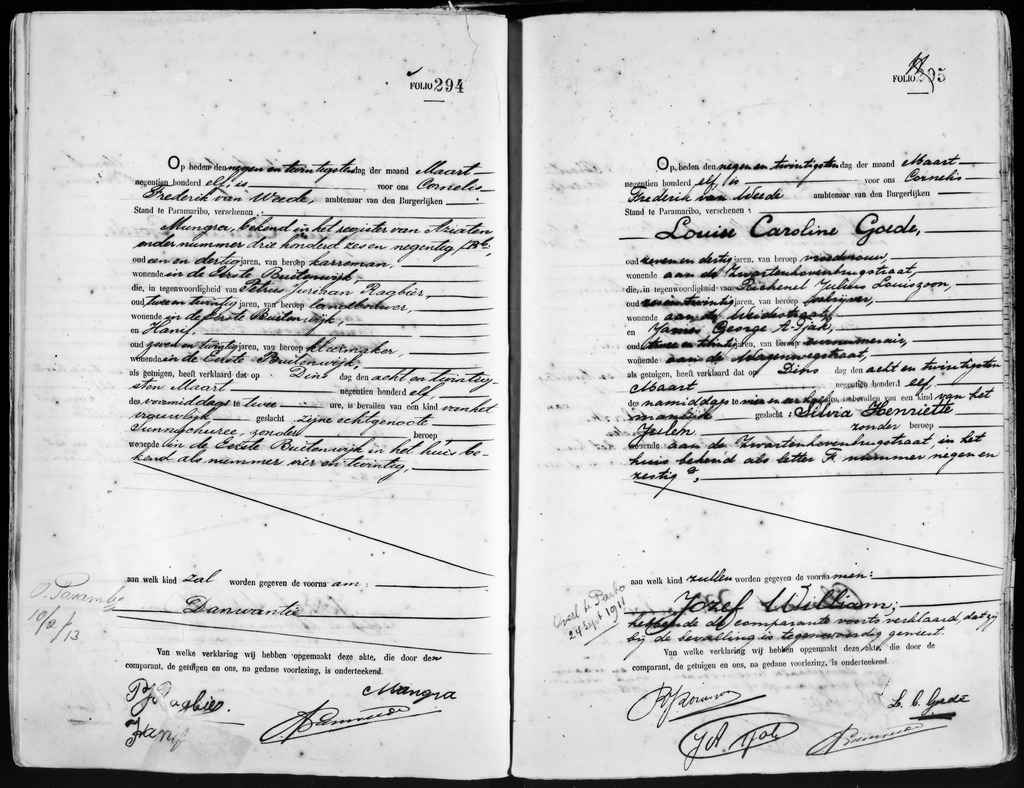 FOLIO 294
Op heden den negen en twintigsten dag der maand Maart
negentien honderd elf, is voor ons Cornelis
Frederik van Weede, ambtenaar van den Burgerlijken
Stand te Paramaribo, verschenen:
Mungra, bekend in het register van Aziaten
onder nummer drie honderd zes en negentig,
oud een en dertig jaren, van beroep karreman,
wonende in de Eerste Buitenwijk,
die, in tegenwoordigheid van Petrus Juriaan Ragbier,
oud twee en twintig jaren, van beroep landbouwer,
wonende in de Eerste Buitenwijk,
en Hanif,
oud zeven en twintig jaren, van beroep kleermaker,
wonende in de Eerste Buitenwijk,
als getuigen, heeft verklaard dat op Dins dag den acht en twintig-
sten Maart negentien honderd elf,
des voormiddags te twee ure, is bevallen van een kind van het
vrouwelijk geslacht zijne echtgenoote
zonder beroep,
wonende in de Eerste Buitenwijk in het huis be-
kend als nummer vier en twintig,
aan welk kind zal worden gegeven de voornaam:
Danwantie
O. Parambo
10/2/13
Van welke verklaring wij hebben opgemaakt deze akte, die door den
comparant, de getuigen en ons, na gedane voorlezing, is onderteekend.
PJRagbier.
Mangra
Hanif
FOLIO 295
Op heden den negen en twintigsten dag der maand Maart
negentien honderd elf, is voor ons Cornelis
Frederik van Weede ambtenaar van den Burgerlijken
Stand te Paramaribo, verschenen:
Louise Caroline Goede,
oud zeven en dertig jaren, van beroep vroedvrouw,
wonende aan de Zwartenhovenbrugstraat,
die, in tegenwoordigheid van Julius Louiszoon,
oud twintig jaren, van beroep schrijver,
wonende aan de Weidestraat,
en James George A-Tjak,
oud twee en twintig jaren, van beroep surnumerair,
wonende aan de Wagenwegstraat,
als getuigen, heeft verklaard dat op Dins dag den acht en twintigsten
Maart negentien honderd elf,
des namiddags te ure, is bevallen van een kind van het
manlijk geslacht: Silvia Henriette
zonder beroep
wonende aan de Zwartenhovenbrugstraat, in het
huis bekend als letter F nummer negen en
zestig a,
aan welk kind zullen worden gegeven de voornamen:
Jozef William;
hebbende de comparante voorts verklaard, dat zij
bij de bevalling is tegenwoordig geweest.
Overl. te Parbo
24 Sept 1911
Van welke verklaring wij hebben opgemaakt deze akte, die door de
comparant, de getuigen en ons, na gedane voorlezing, is onderteekend.
L. C. Goede